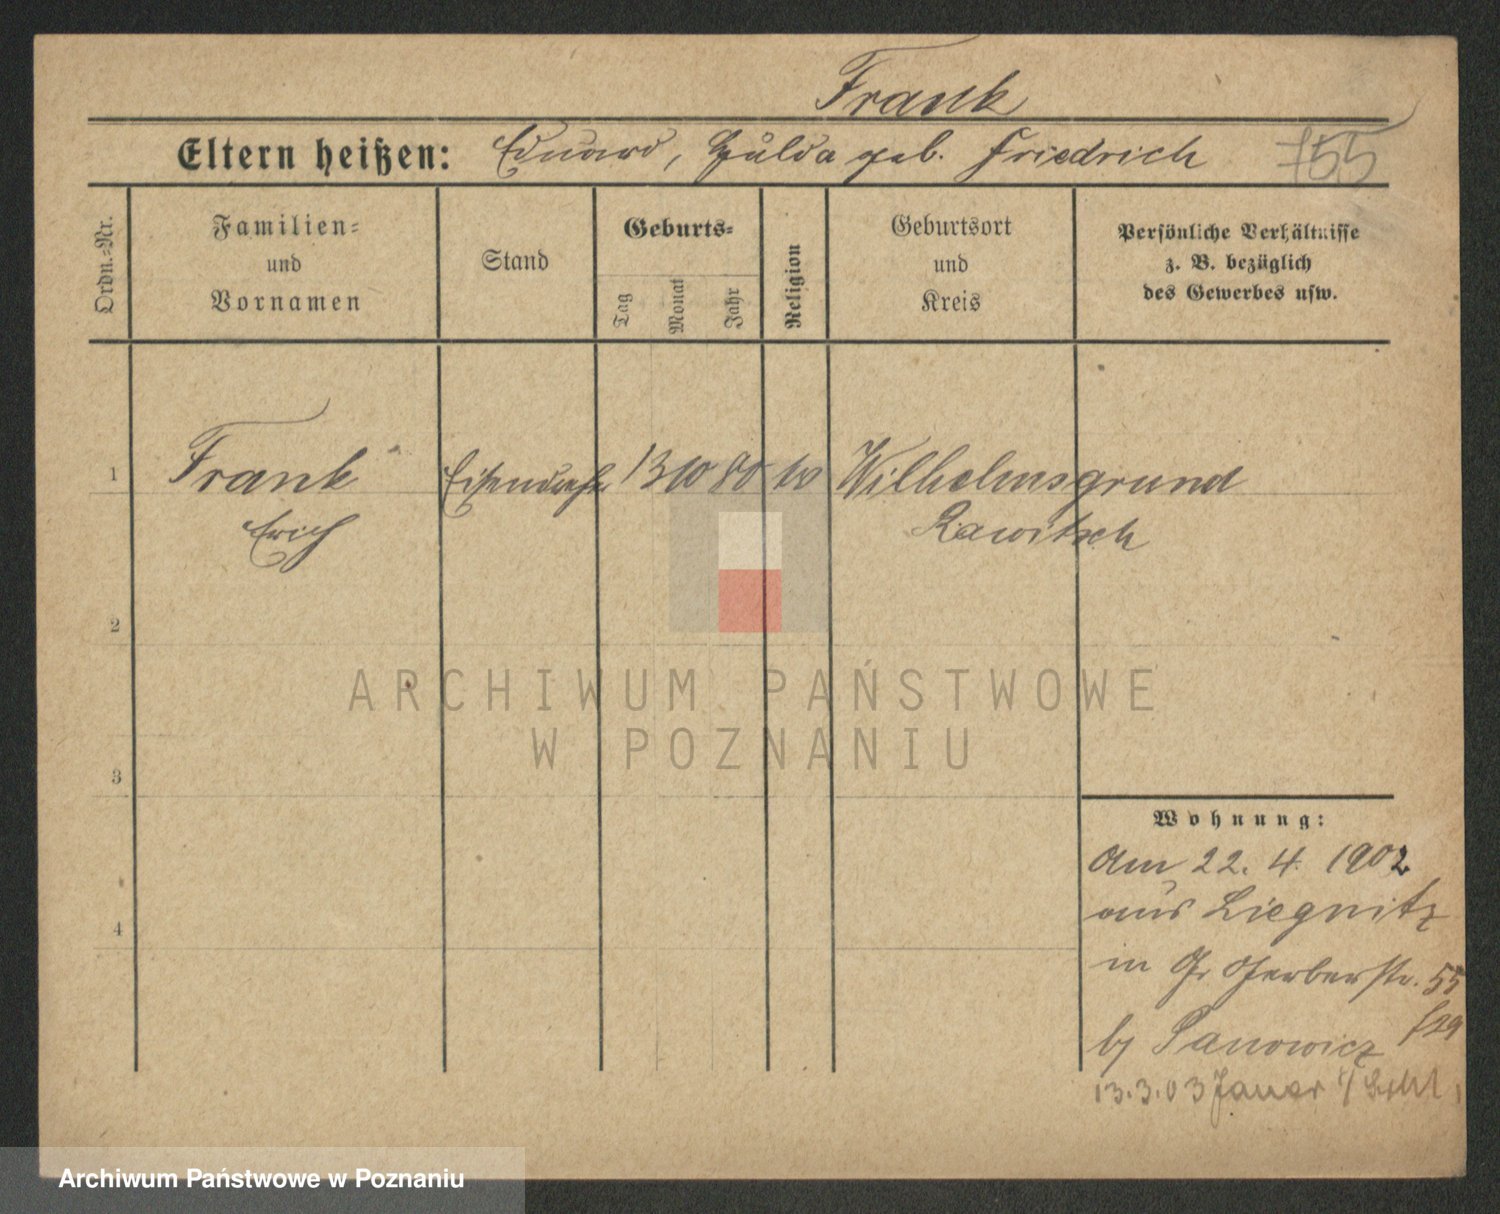 Frank
Eltern heißen: Eduard, Hulda geb. Friedrich 755
Ordn.-Nr.
Familien-
und
Vornamen
Stand
Geburts-
Tag
Monat
Jahr
Religion
Geburtsort
und
Kreis
Persönliche Verhältnisse
z. B. bezüglich
des Gewerbes usw.
1 Frank Eisendreher 13 10 80 Wilhelmsgrund
Erich Rawitsch
2
3
4
ARCHIWUM PAŃSTWOWE
W POZNANIU
Wohnung:
Am 22. 4. 1902
aus Liegnitz
in Gr Gerberstr. 55
by Panowicz
13.3.03 Jauer
Archiwum Państwowe w Poznaniu